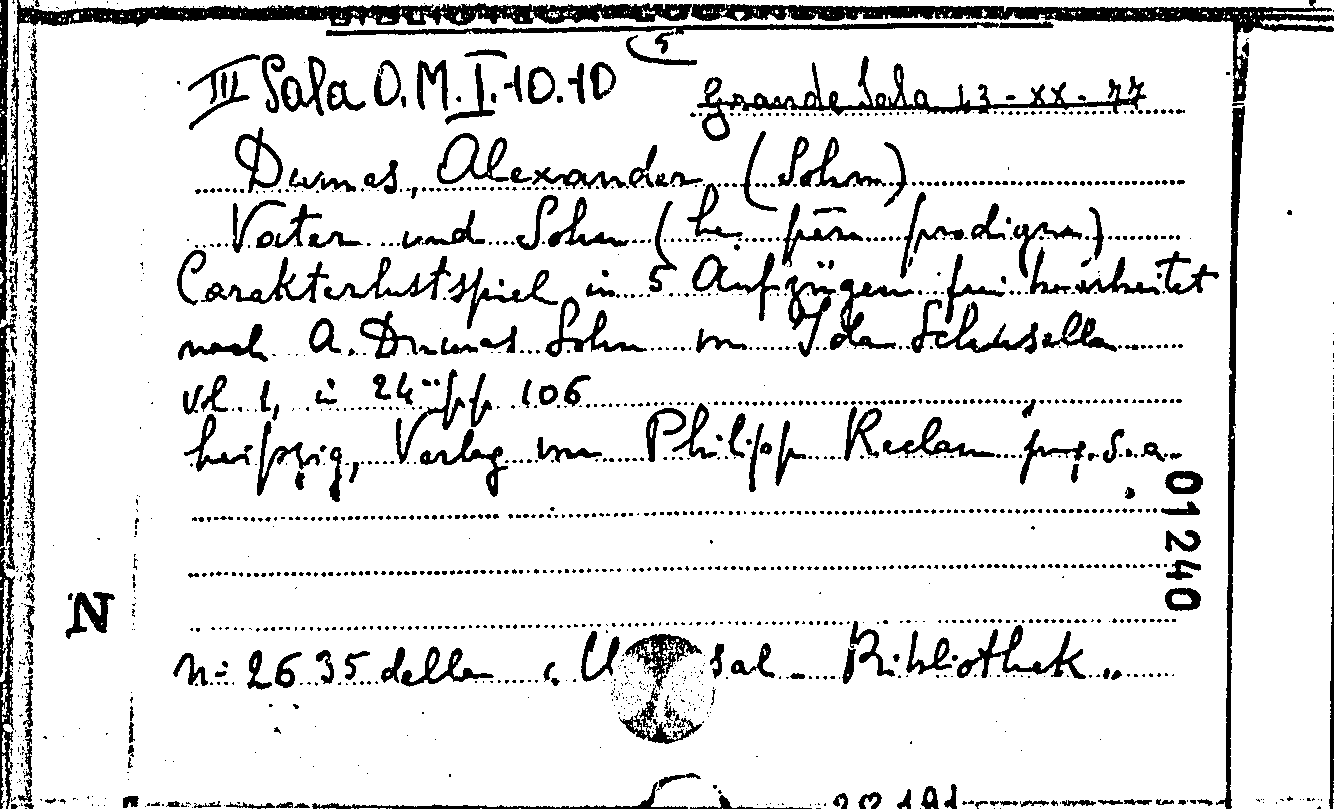 5
III Sala O.M.I.10.10
Grande Sala 13-XX-77
Dumas, Alexander (Sohn)
Vater und Sohn (Le père prodigue)
Carakterlustspiel in 5 Aufzügen frei bearbeitet
nach A. Dumas Sohn von Ida Schuselka
vol. 1, in 24° pp 106
Leipzig, Verlag von Philipp Reclam jun. s.a.
01240
N
n: 2635 della "U sal Bibliothek"